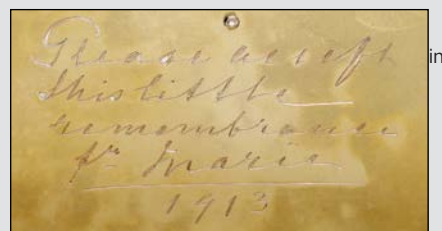 Please accept
this little
remembrance
fr Marie
1913
in